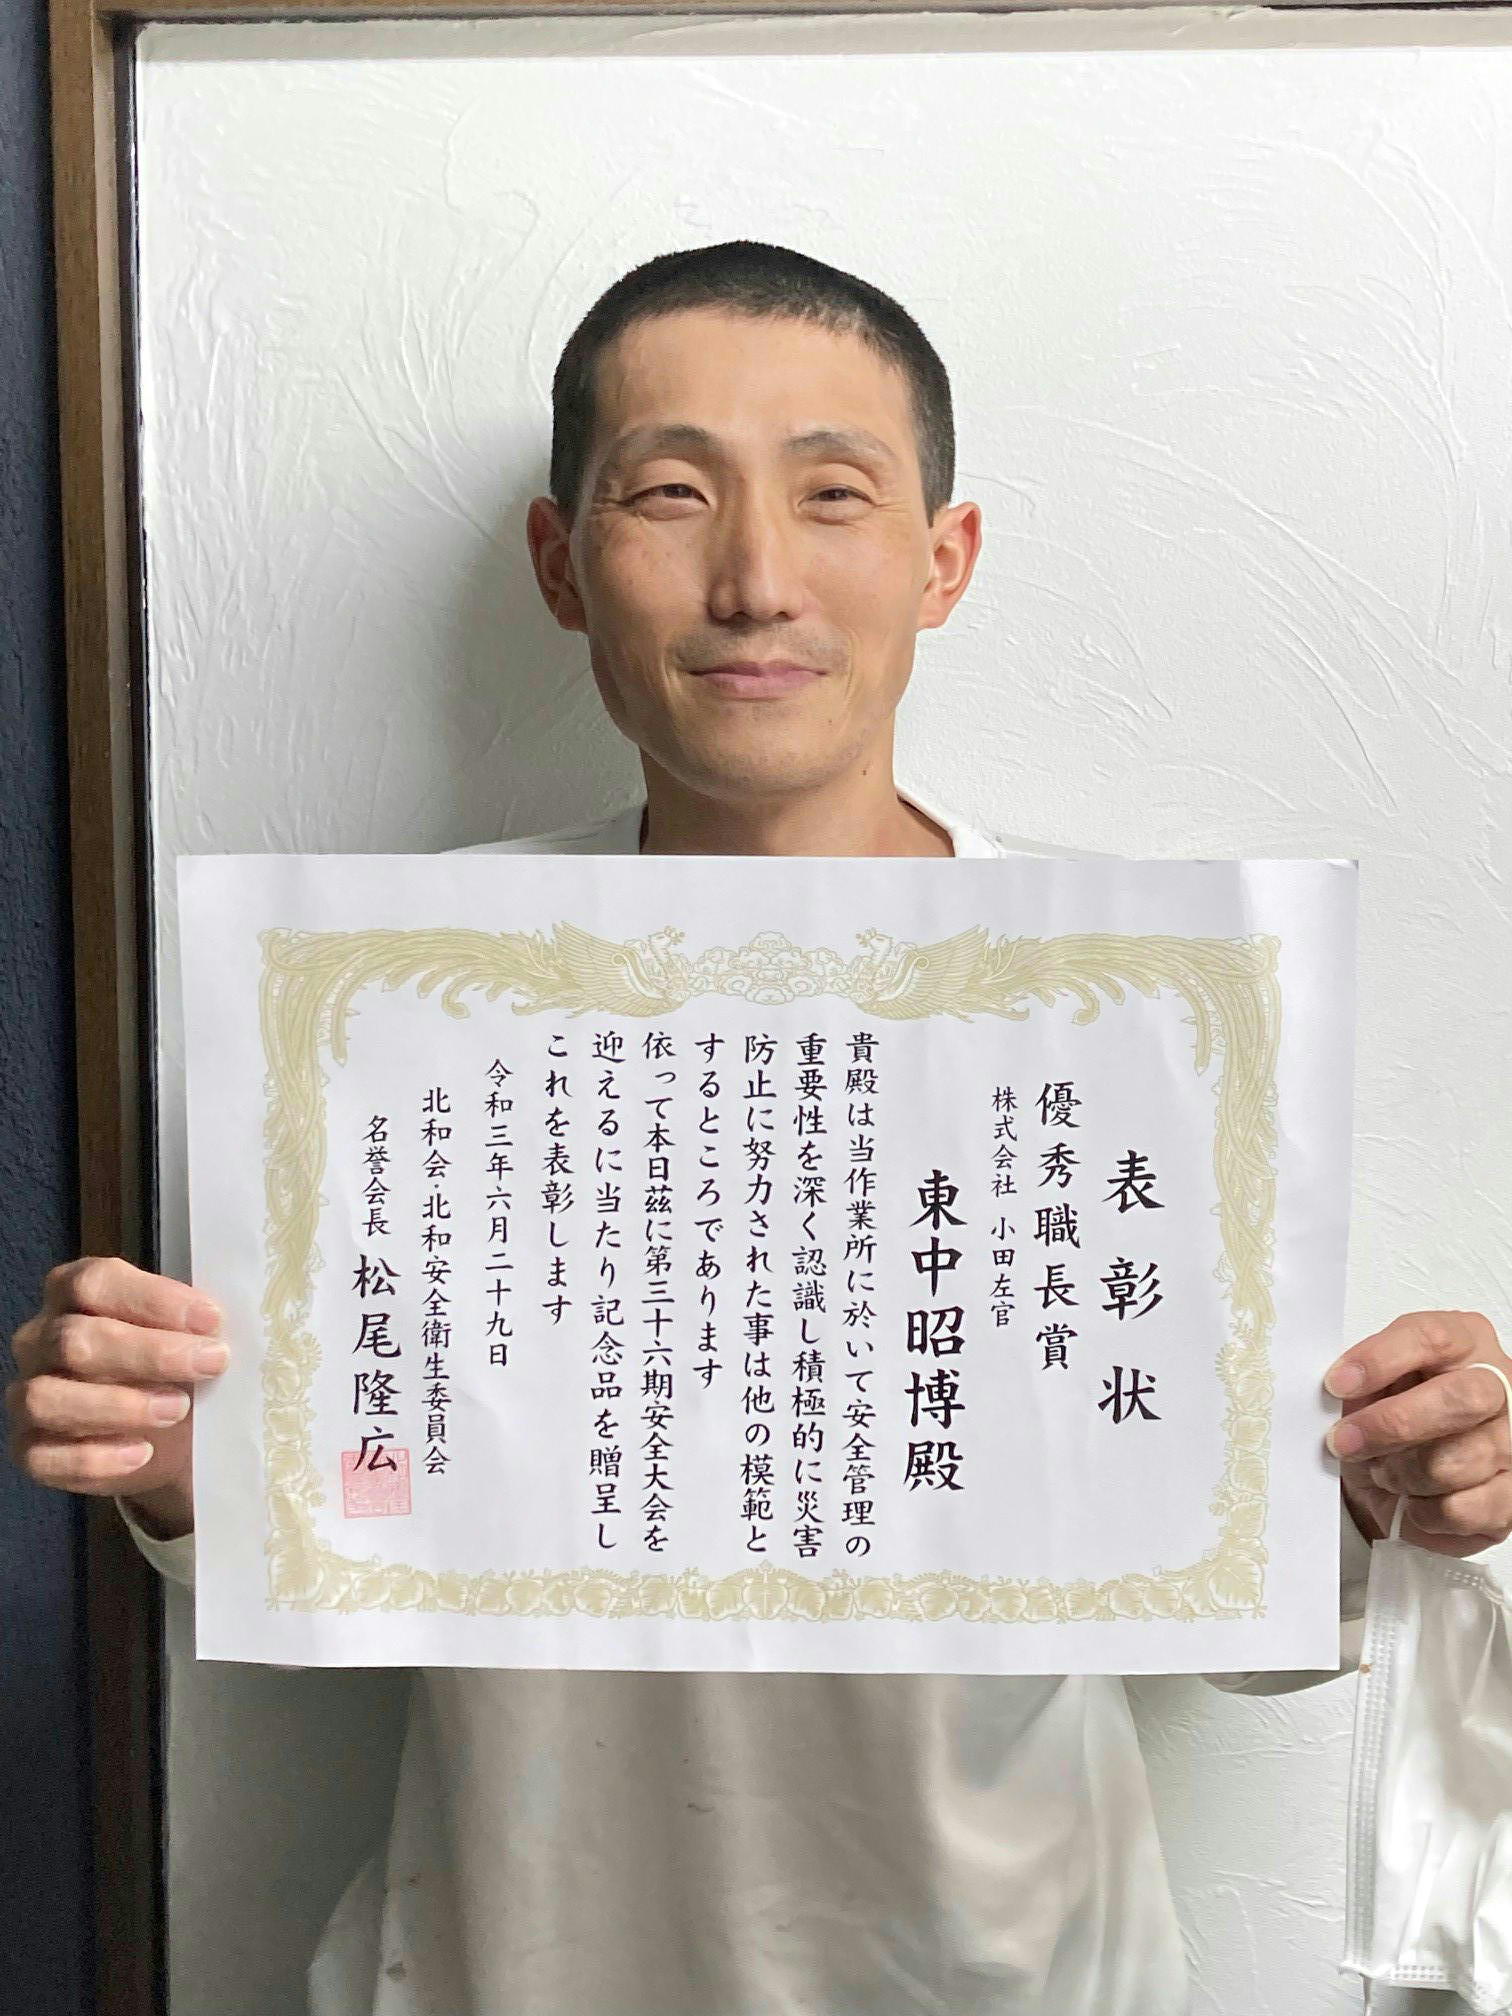 表彰状
優秀職長賞
株式会社 小田左官
東中昭博殿
貴殿は当作業所に於いて安全管理の
重要性を深く認識し積極的に災害
防止に努力された事は他の模範と
するところであります
依って本日茲に第三十六期安全大会を
迎えるに当たり記念品を贈呈し
これを表彰します
令和三年六月二十九日
北和会・北和安全衛生委員会
名誉会長 松尾隆広